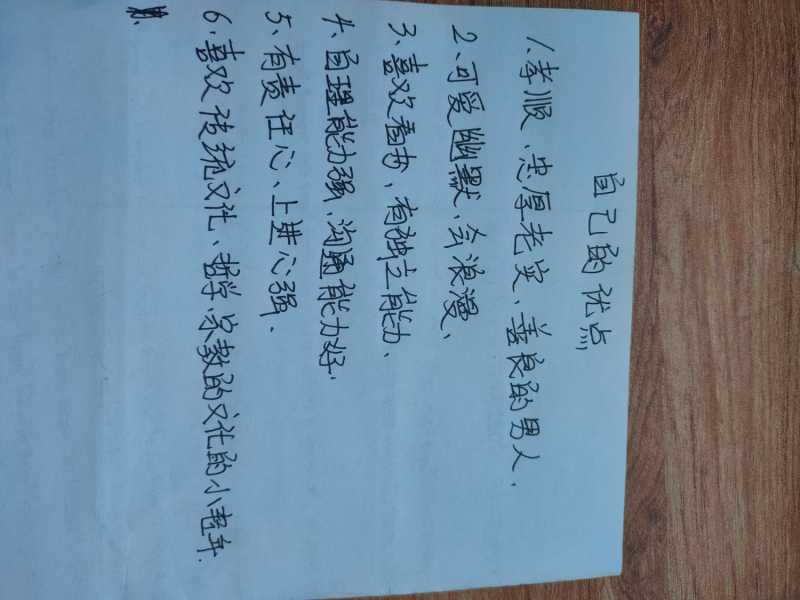 自己的优点
1、孝顺、忠厚老实、善良的男人.
2、可爱幽默、会浪漫、
3、喜欢看书、有独立能力、
4、自理能力强、沟通能力好.
5、有责任心、上进心强.
6.喜欢传统文化、哲学、宗教的文化的小青年.